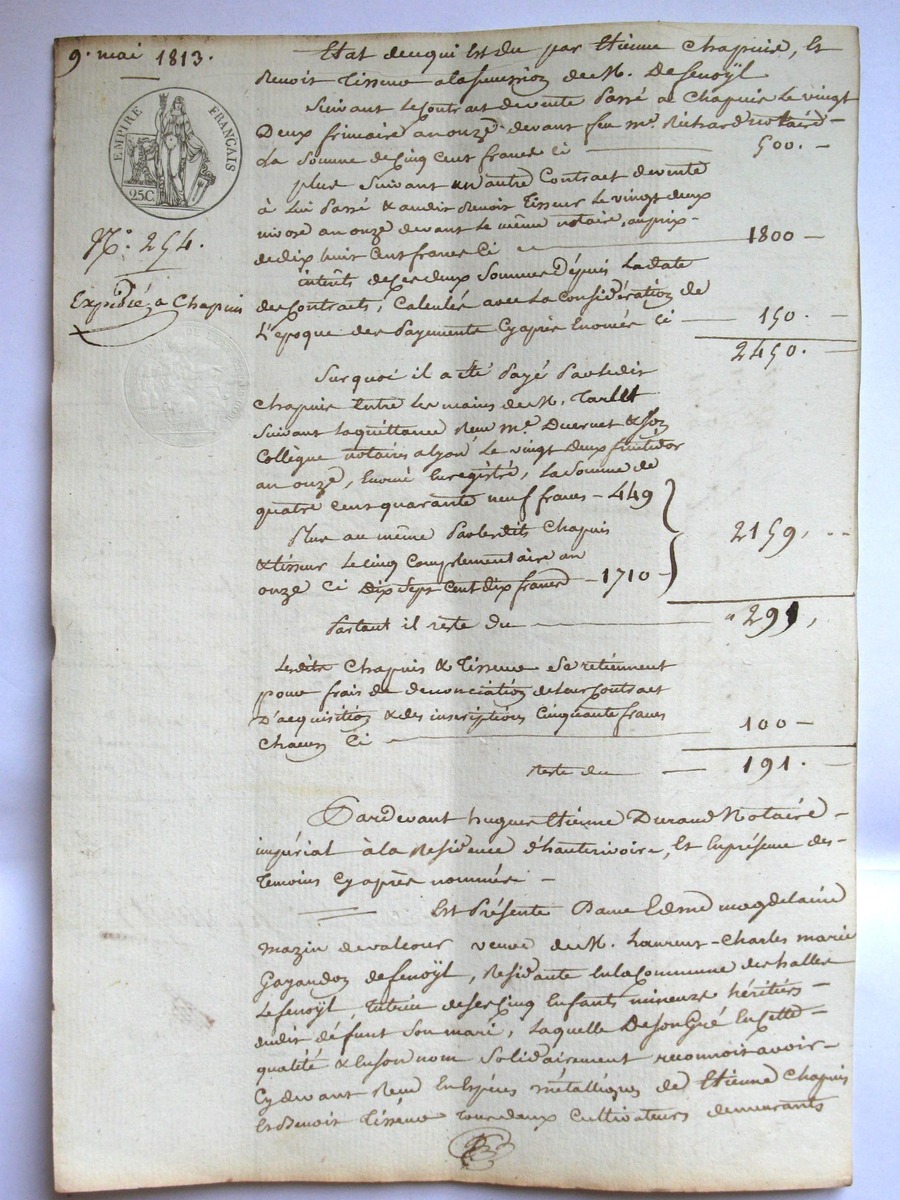 9. mai 1813.
EMPIRE FRANÇAIS
25C.
N.º 254.
Expédié a Chapuis
Etat de ce qui Est du par Etienne Chapuis, Et
Benoit Tisseur a la succession de M. De fenoÿl
Suivant le Contract de vente Passé a Chapuis Le vingt
Deux frimaire an onze devant feu me. Richard notaire -
La Somme de Cinq Cent francs Ci 500. -
plus Suivant un autre Contract de vente
à Lui Passé & audit Benoit Tisseur Le vingt deux
nivose an onze devant Le même notaire, au prix -
de dix huit Cent francs Ci 1800 -
intérêts de Ces deux Sommes Depuis La date
des Contracts, Calculés avec La Considération de
L'époque des Payements Cy après Enoncés Ci 150. -
2450. -
Sur quoi il a été Payé Par ledit
Chapuis Entre Les mains de M.
Suivant La quittance Reçu me. & Son
Collègue notaires a Lyon Le vingt deux fructidor
an onze, Enregistré, La Somme de
quatre cent quarante neuf francs - 449
Plus au même Par lesdits Chapuis
& tisseur Le Cinq Complementaire an
onze Ci Dix Sept Cent dix francs - 1710 -
2159, --
Partant il reste du 291,
Lesdits Chapuis & Tisseur Se retiennent
pour frais de denonciation de leur Contract
D'acquisition & des inscriptions Cinquante francs
Chacun Ci 100 -
Reste du 191. -
Pardevant hugues Etienne Durand Notaire -
impérial à la Residence d'hauterivoire, Et En présence des -
Temoins Cy après nommés -
Est Présente Dame Edme magdelaine
mazin de valcour veuve de M. Laurent-Charles marie
Gayandon de fenoÿl, Residante En la Commune des halles
Le fenoÿl, tutrice de ses Cinq Enfants mineurs héritiers -
dudit défunt Son mari, Laquelle De son Gré En Cette -
qualité & En son nom Solidairement reconnoit avoir -
Cy devant Reçu En Espèces métalliques de Etienne Chapuis
Et Benoit Tisseur Tous deux Cultivateurs demeurants